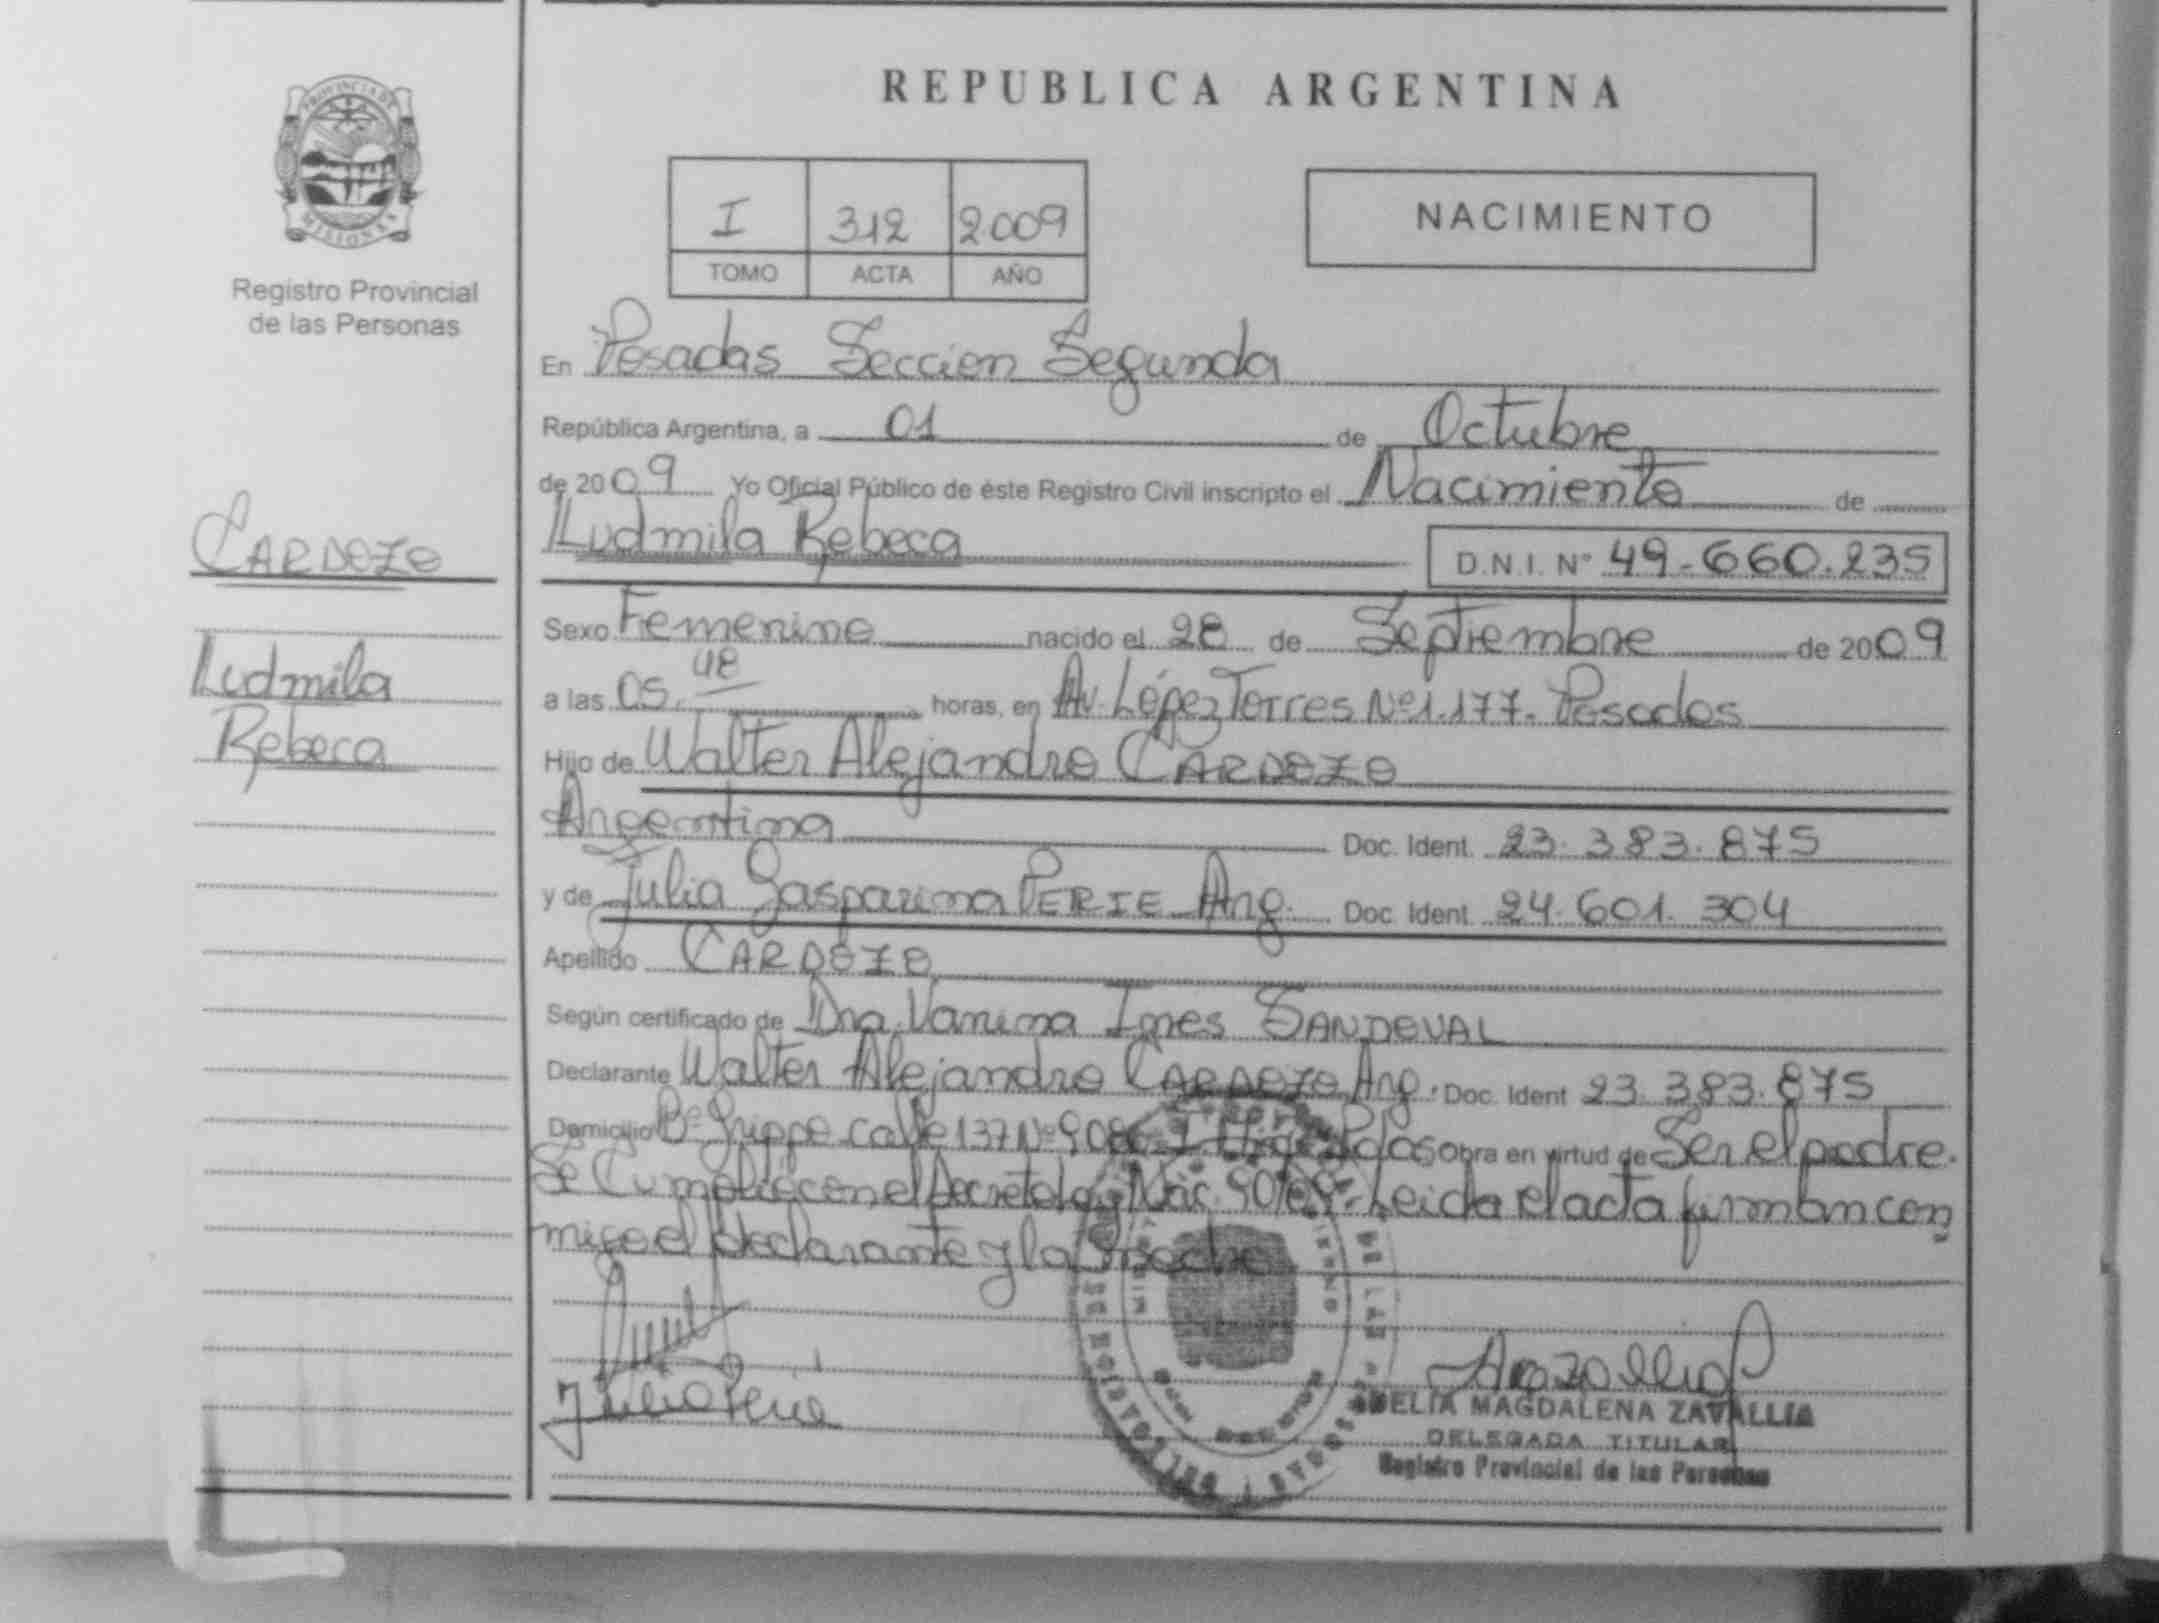 PROVINCIA DE
MISIONES
Registro Provincial
de las Personas
CARDOZO
Ludmila
Rebeca
REPUBLICA ARGENTINA
I 312 2.009
TOMO ACTA AÑO
NACIMIENTO
En Posadas Seccion Segunda
República Argentina, a 01 de Octubre
de 2009 Yo Oficial Público de éste Registro Civil inscripto el Nacimiento de
Ludmila Rebeca D.N.I. Nº 49-660.235
Sexo Femenino nacido el 28 de Septiembre de 2009
a las 05.48 horas, en Av. López Torres Nº 1.177. Posadas
Hijo de Walter Alejandro CARDOZO
Argentina Doc. Ident. 23.383.875
y de Julia Gasparina PERIE Arg. Doc. Ident. 24.601.304
Apellido CARDOZO
Según certificado de Dra. Vanina Ines SANDOVAL
Declarante Walter Alejandro CARDOZO Arg. Doc. Ident 23.383.875
Domicilio Bº calle 137 Nº Pdas Obra en virtud de Ser el padre.
Se Cumplió con el Decreto Ley Nac. Leida el acta firman con
migo el declarante y la madre
Julia Perie
DELIA MAGDALENA ZAVALLIA
DELEGADA TITULAR
Registro Provincial de las Personas